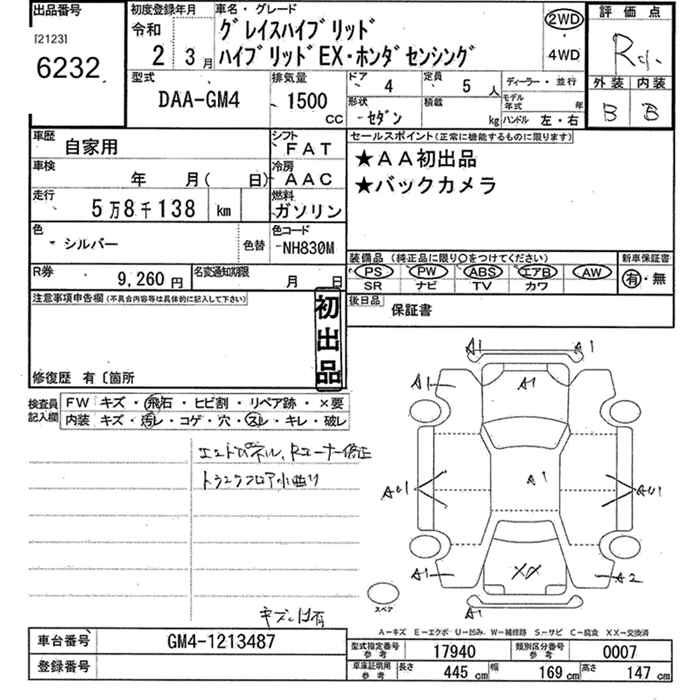 出品番号
[2123]
6232
初度登録年月
令和
2 3月
車名・グレード
グレイスハイブリッド
ハイブリッドEX・ホンダセンシング
2WD
4WD
評価点
外装 内装
B B
型式
DAA-GM4
排気量
1500
CC
ドア
4
定員
5 人
形状
セダン
積載
kg
ディーラー・並行
モデル年式 年
ハンドル 左・右
車歴
自家用
シフト
FAT
車検
年 月( 日)
冷房
AAC
走行
5万8千138 km
燃料
ガソリン
色
シルバー
色替
色コード
NH830M
R券
9,260円
名変通知期限
月 日
セールスポイント(正常に機能するものに限ります)
★AA初出品
★バックカメラ
装備品(純正品に限り○をつけてください)
新車保証書
PS PW ABS エアB AW
SR ナビ TV カワ
有・無
後日品
保証書
注意事項申告欄(不具合内容等は具体的に記入して下さい)
初出品
修復歴 有〔箇所
検査員記入欄
FW キズ・飛石・ヒビ割・リペア跡・×要
内装 キズ・汚レ・コゲ・穴・スレ・キレ・破レ
エンドパネル、Rコーナー修正
トランクフロア小曲り
A1 A1
A1 A1
A1
A1
XX
A1 A2
A1
スペア
A－キズ E－エクボ U－凹み W－補修跡 S－サビ C－腐食 XX－交換済
車台番号
GM4-1213487
登録番号
型式指定番号 参考
17940
類別区分番号 参考
0007
車庫証明用 参考
長さ 445 cm 幅 169 cm 高さ 147 cm